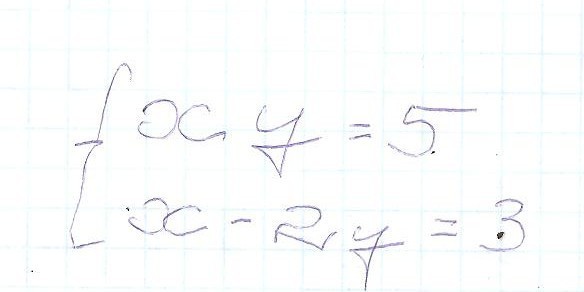 { x y = 5
x - 2y = 3